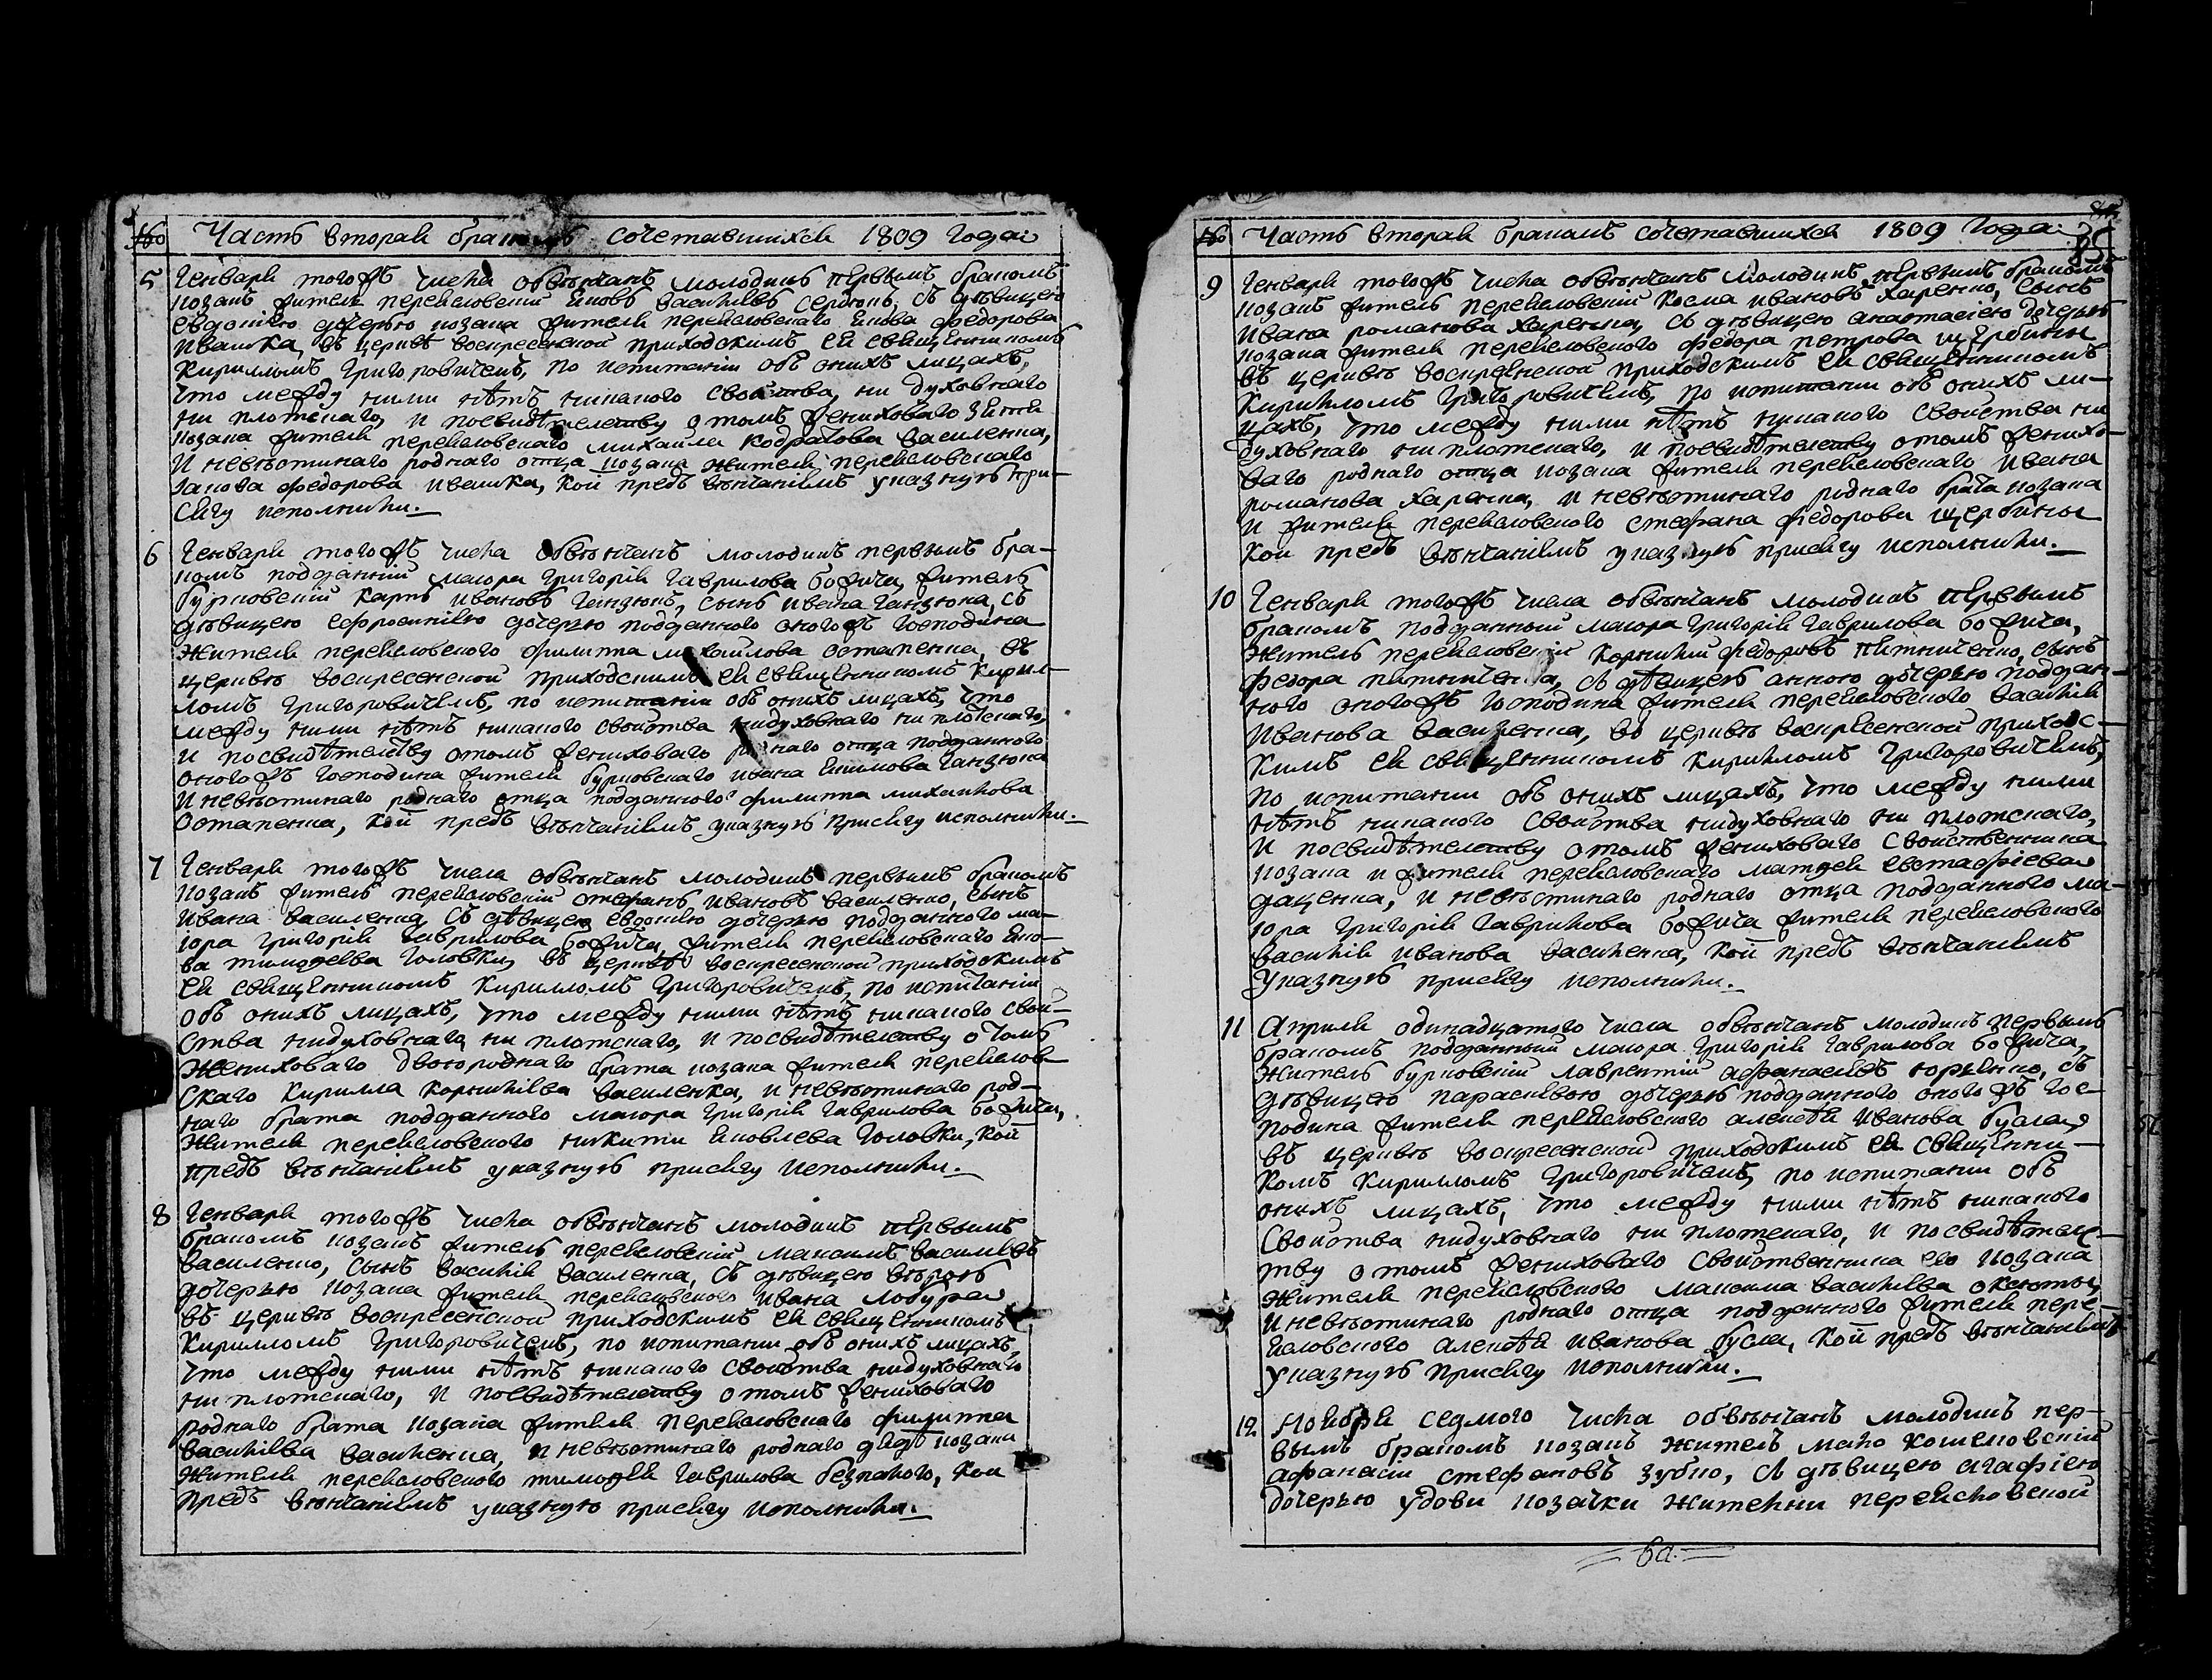 № Часть вторая бракомъ сочетавшихся 1809 года
5 Генваря тогожъ числа обвѣнчанъ молодикъ первымъ бракомъ
козакъ житель переясловскій Яковъ Василіевъ Сердюкъ, съ дѣвицею
Евдокіею дочерью козака жителя переясловскаго Якова Федорова
Ивашка, въ церквѣ воскресенской приходскимъ ея священникомъ
Кирилломъ Григоровичемъ, по испитаніи объ онихъ лицахъ,
что между ними нѣтъ никакого свойства, ни духовнаго
ни плотскаго, и посвидѣтелству о томъ жениховаго зятя
козака жителя переясловскаго Михайла Кодратова Василенка,
И невѣстинаго роднаго отца козака жителя переясловскаго
Іакова Федорова Ивашка, кой предъ вѣнчаніемъ указную при-
сягу исполнили.
6 Генваря тогожъ числа обвѣнчанъ молодикъ первымъ бра-
комъ подданній маіора Григорія Гаврилова Божича, житель
бурковскій Карпъ Ивановъ Ганзюкъ, сынъ Ивана Ганзюка, съ
дѣвицею Ефросиніею дочерью подданного оногожъ господина
жителя переясловского Филиппа Михайлова Остапенка, въ
церквѣ воскресенской приходскимъ ея священникомъ Кирил-
ломъ Григоровичемъ, по испитаніи объ онихъ лицахъ, что
между ними нѣтъ никакого свойства нидуховнаго ни плотскаго,
И посвидѣтелству отомъ жениховаго роднаго отца подданного
оногожъ господина жителя бурковскаго Ивана Якимова Ганзюка
И невѣстинаго роднаго отца подданного Филиппа Михайлова
Остапенка, кой предъ вѣнчаніемъ указную присягу исполнили.
7 Генваря тогожъ числа обвѣнчанъ молодикъ первымъ бракомъ
козакъ житель переясловскій Стефанъ Ивановъ Василенко, сынъ
Ивана Василенка, съ дѣвицею Евдокіею дочерью подданного ма-
іора Григорія Гаврилова Божича, жителя переясловскаго Яко-
ва Тимофеева Головки, въ церквѣ воскресенской приходскимъ
ея священникомъ Кирилломъ Григоровичемъ, по испитаніи
объ онихъ лицахъ, что между ними нѣтъ никакого свой-
ства нидуховнаго, ни плотскаго, и посвидѣтелству отомъ
Жениховаго двоюроднаго брата козака жителя переяслов-
скаго Кирилла Корниліева Василенка, и невѣстинаго род-
наго брата подданного маіора Григорія Гаврилова Божича,
Жителя переясловского Никити Яковлева Головки, кой
предъ вѣнчаніемъ указную присягу исполнили.
8 Генваря тогожъ числа обвѣнчанъ молодикъ первымъ
бракомъ козакъ житель переясловскій Максимъ Василіевъ
Василенко, сынъ Василія Василенка, съ дѣвицею Вѣрою
дочерью козака жителя переясловского Ивана
въ церквѣ воскресенской приходскимъ ея священникомъ
Кирилломъ Григоровичемъ, по испитаніи объ онихъ лицахъ,
что между ними нѣтъ никакого свойства нидуховнаго
ни плотскаго, и посвидѣтелству отомъ жениховаго
роднаго брата козака жителя переясловскаго Филиппа
Василіева Василенка, и невѣстинаго роднаго козака
жителя переясловского Тимофея Гаврилова, кои
предъ вѣнчаніемъ указную присягу исполнили.
85
№ Часть вторая бракомъ сочетавшихся 1809 года
9 Генваря тогожъ числа обвѣнчанъ молодикъ первымъ бракомъ
козакъ житель переясловскій Косма Ивановъ Харенко, сынъ
Ивана Романова Харенка, съ дѣвицею Анастасіею дочерью
козака жителя переясловского Федора Петрова Щербины
въ церквѣ воскресенской приходскимъ ея священникомъ
Кирилломъ Григоровичемъ, по испитании объ онихъ ли-
цахъ, что между ними нѣтъ никакого свойства ни
духовнаго ни плотскаго, и посвидѣтелству отомъ женихо-
ваго роднаго отца козака жителя переясловскаго Ивана
Романова Харенка, и невѣстинаго роднаго брата козака
и жителя переясловского Стефана Федорова Щербины
кои предъ вѣнчаніемъ указную присягу исполнили.
10 Генваря тогожъ числа обвѣнчанъ молодикъ первымъ
бракомъ подданный маіора Григорія Гаврилова Божича,
Житель переясловскій Корнилій Федоровъ, сынъ
Федора, съ дѣвицею Анною дочерью поддан-
ного оногожъ господина жителя переясловского Василія
Иванова Василенка, во церквѣ воскресенской приходс-
кимъ ея священникомъ Кирилломъ Григоровичемъ,
по испитании объ онихъ лицахъ, что между ними
нѣтъ никакого свойства нидуховнаго ни плотскаго,
и посвидѣтелству отомъ жениховаго свойственника
козака и жителя переясловскаго Матфея Евстафіева
Даценка, и невѣстинаго роднаго отца подданного ма-
іора Григорія Гаврилова Божича жителя переясловского
Василія Иванова Василенка, кой предъ вѣнчаніемъ
Указную присягу исполнили.
11 Апрѣля одинадцатого числа обвѣнчанъ молодикъ первымъ
бракомъ подданный маіора Григорія Гаврилова Божича,
житель бурковскій Лаврентій Афанасіевъ Юрченко, съ
дѣвицею Параскевіею дочерью подданного оногожъ гос-
подина жителя переясловского Алексѣя Иванова Бусла
въ церквѣ воскресенской приходскимъ ея священни-
комъ Кирилломъ Григоровичемъ, по испитании объ
онихъ лицахъ, что между ними нѣтъ никакого
Свойства нидуховнаго ни плотскаго, и посвидѣтелс-
тву отомъ жениховаго свойственника его козака
Жителя переясловского Максима Василіева
И невѣстинаго роднаго отца подданного жителя пере-
ясловского Алексѣя Иванова Бусла, кой предъ вѣнчаніемъ
указную присягу исполнили.
12. Ноября седмого числа обвѣнчанъ молодикъ пер-
вымъ бракомъ козакъ житель мало кошелювский
Афанасій Стефановъ Зубко, съ дѣвицею Агафіею
дочерью удови козачки жителки переясловской